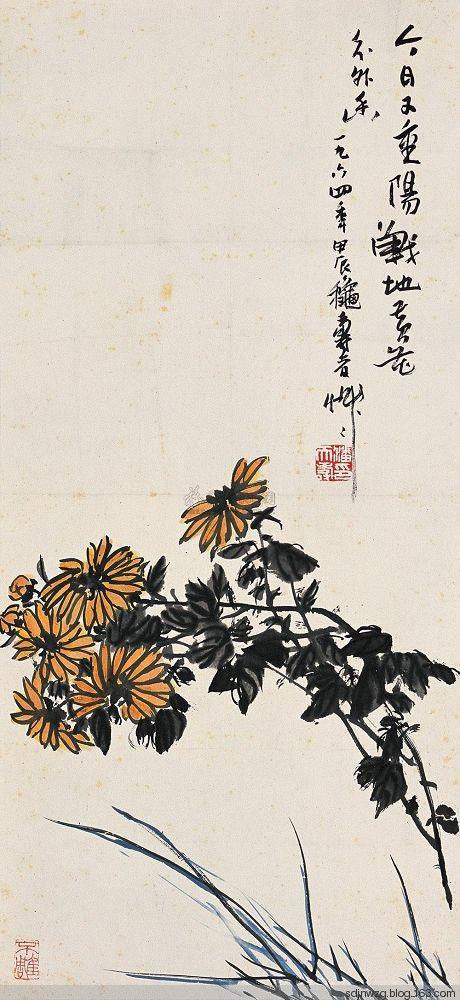 今日又重陽戰地黃花
分外香一九六四年甲辰龝壽者
潘天壽印
不雕
sdjnwzq.blog.163.com